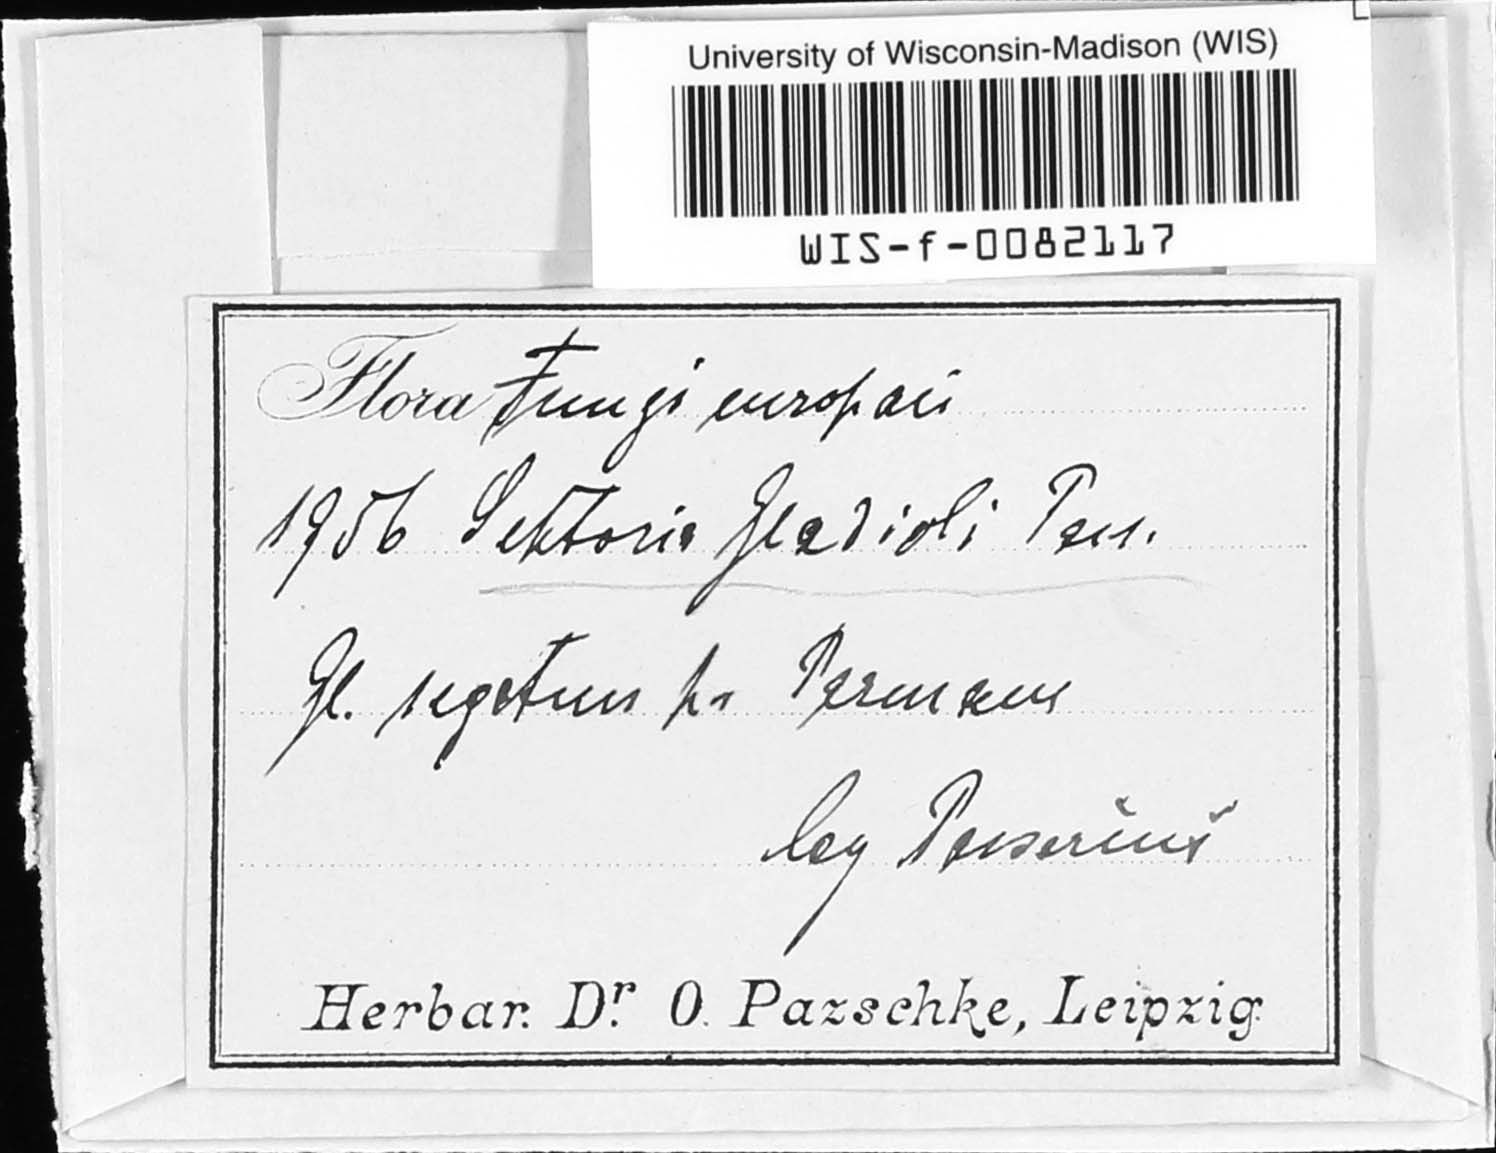 University of Wisconsin-Madison (WIS)
WIS-f-0082117
Flora Fungi europaei
1956 Septoria Gladioli Pass.
Gl. segetum pr Parmam
leg Passerini
Herbar. Dr. O. Pazschke, Leipzig.